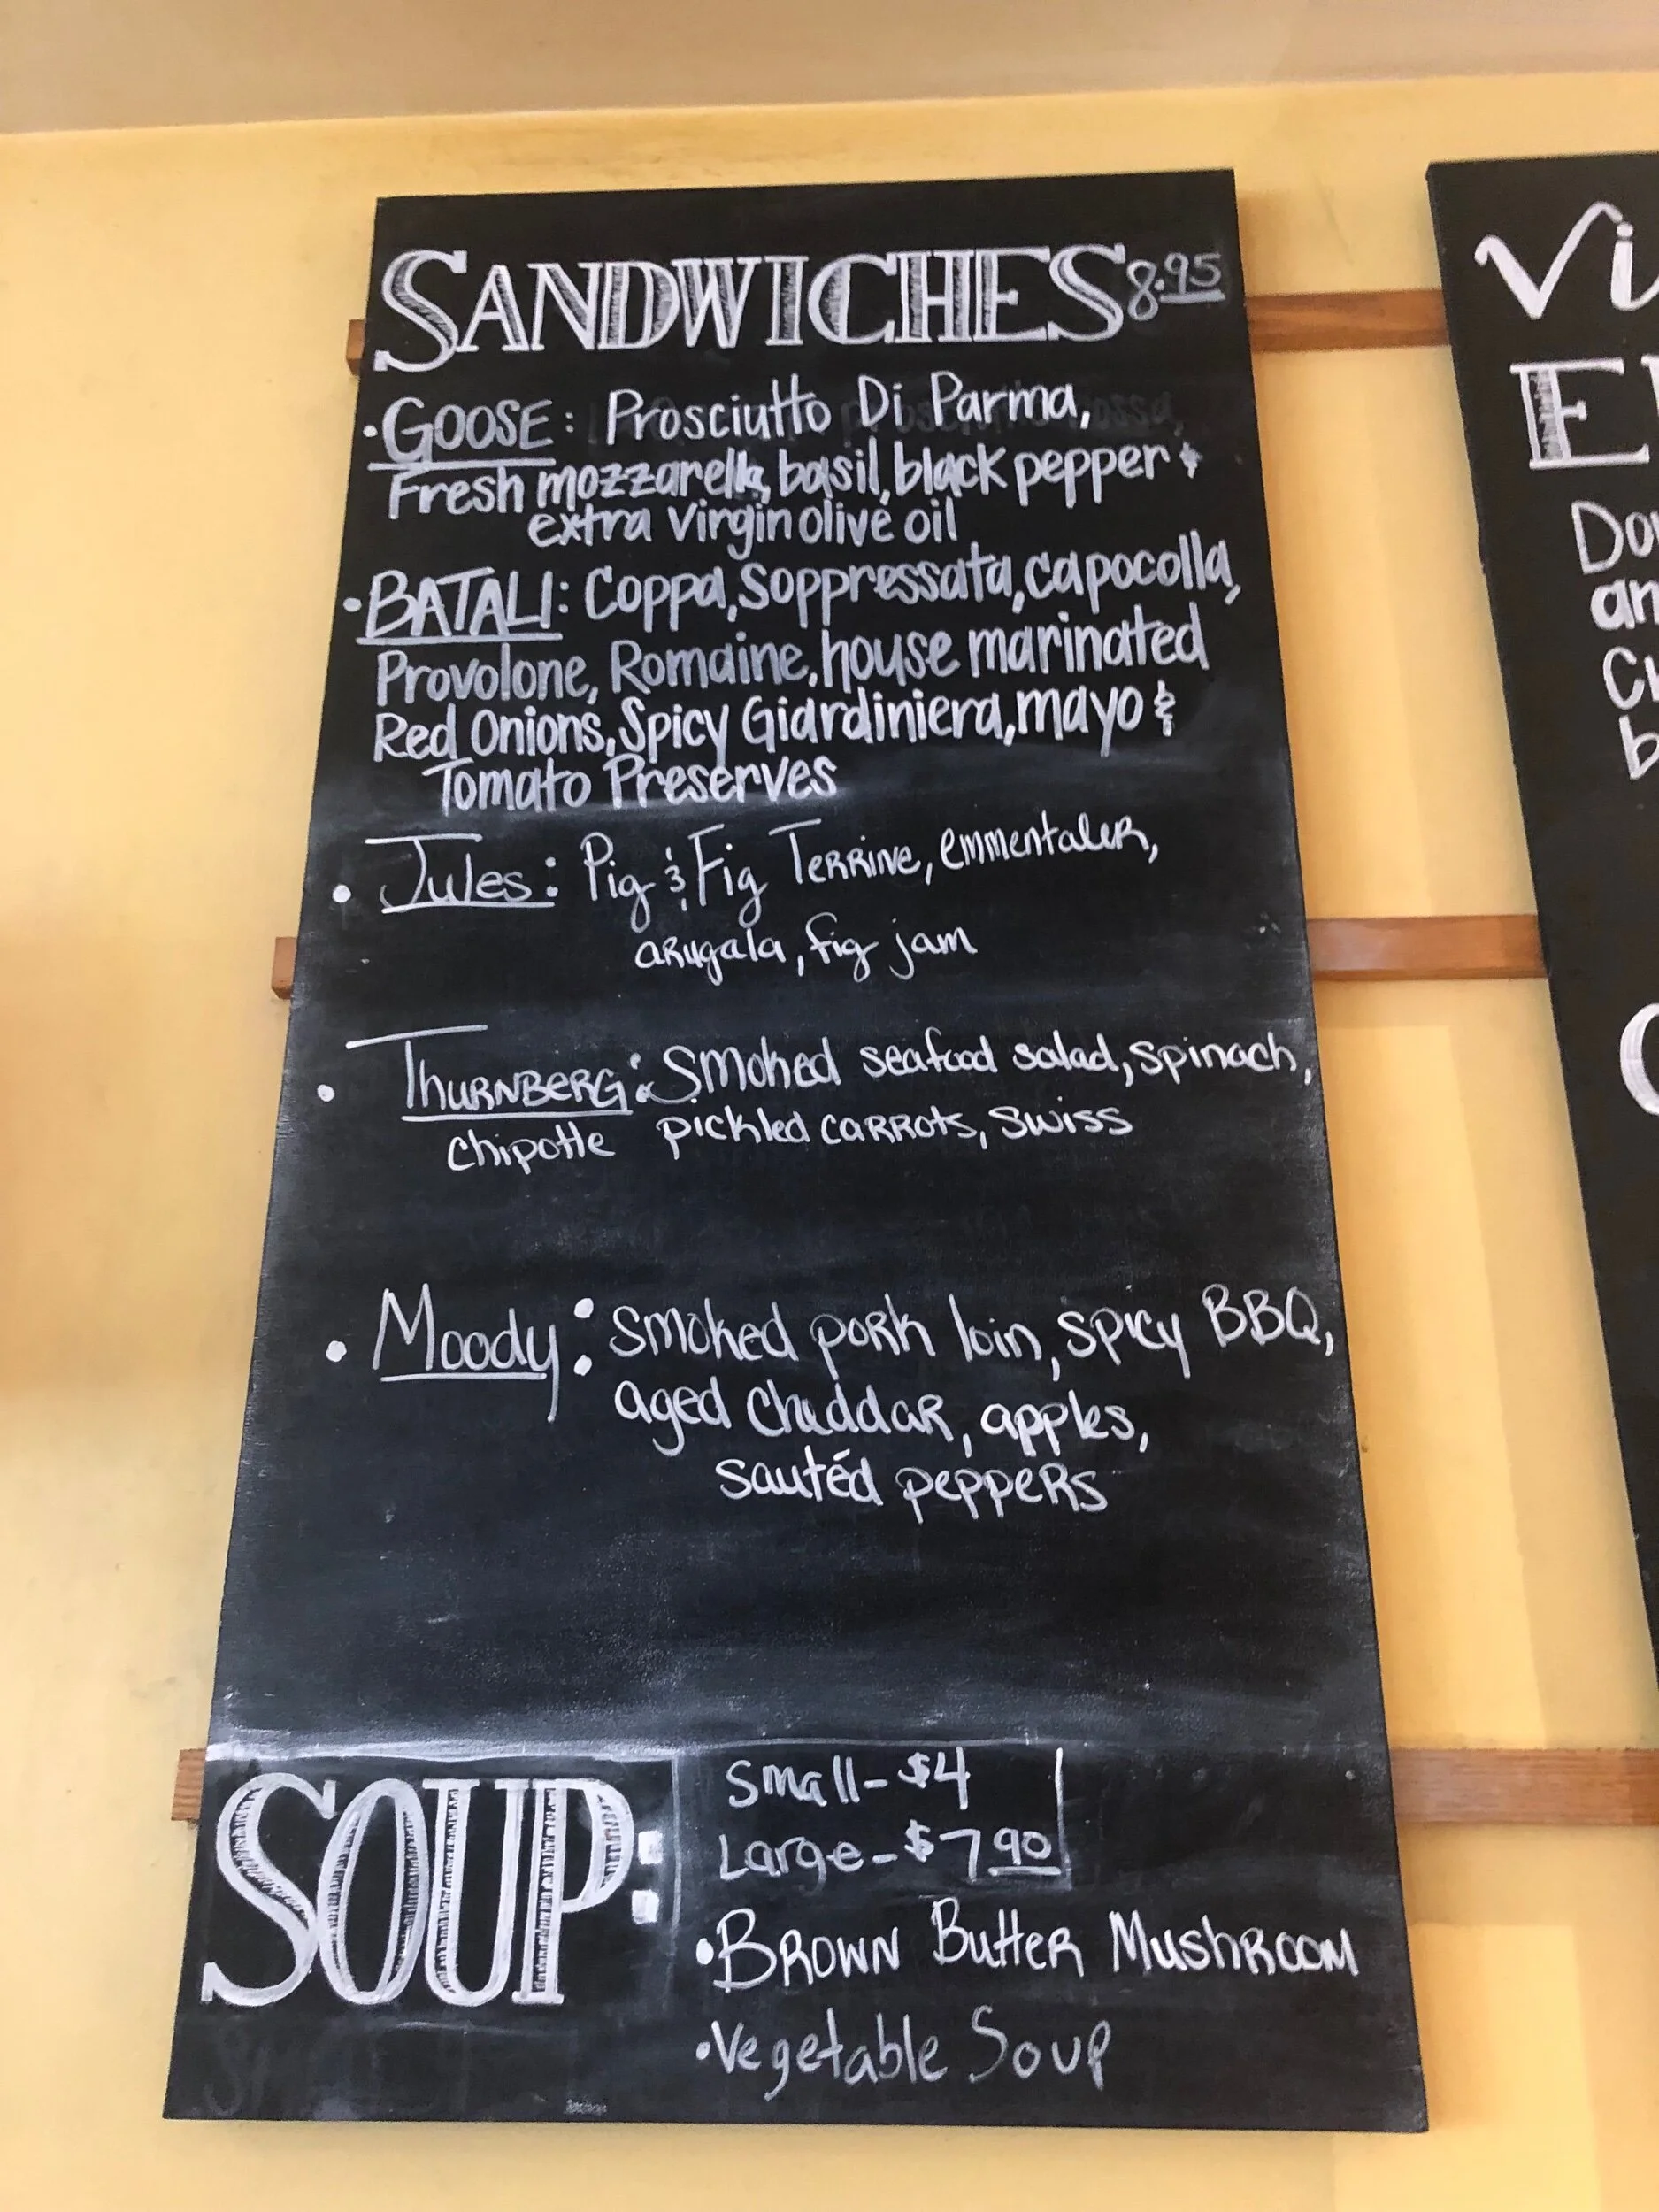 SANDWICHES 8.95
• GOOSE: Prosciutto Di Parma,
Fresh mozzarella, basil, black pepper &
extra Virgin olive oil
• BATALI: Coppa, Soppressata, capocolla,
Provolone, Romaine, house marinated
Red Onions, Spicy Giardiniera, mayo &
Tomato Preserves
• Jules: Pig & Fig Terrine, emmentaler,
arugala, fig jam
• Thurnberg: Smoked seafood salad, spinach,
chipotle pickled carrots, swiss
• Moody: smoked pork loin, spicy BBQ,
aged cheddar, apples,
sautéd peppers
SOUP:
Small - $4
Large - $7.90
• Brown Butter Mushroom
• Vegetable Soup
Vi
E
Do
an
b